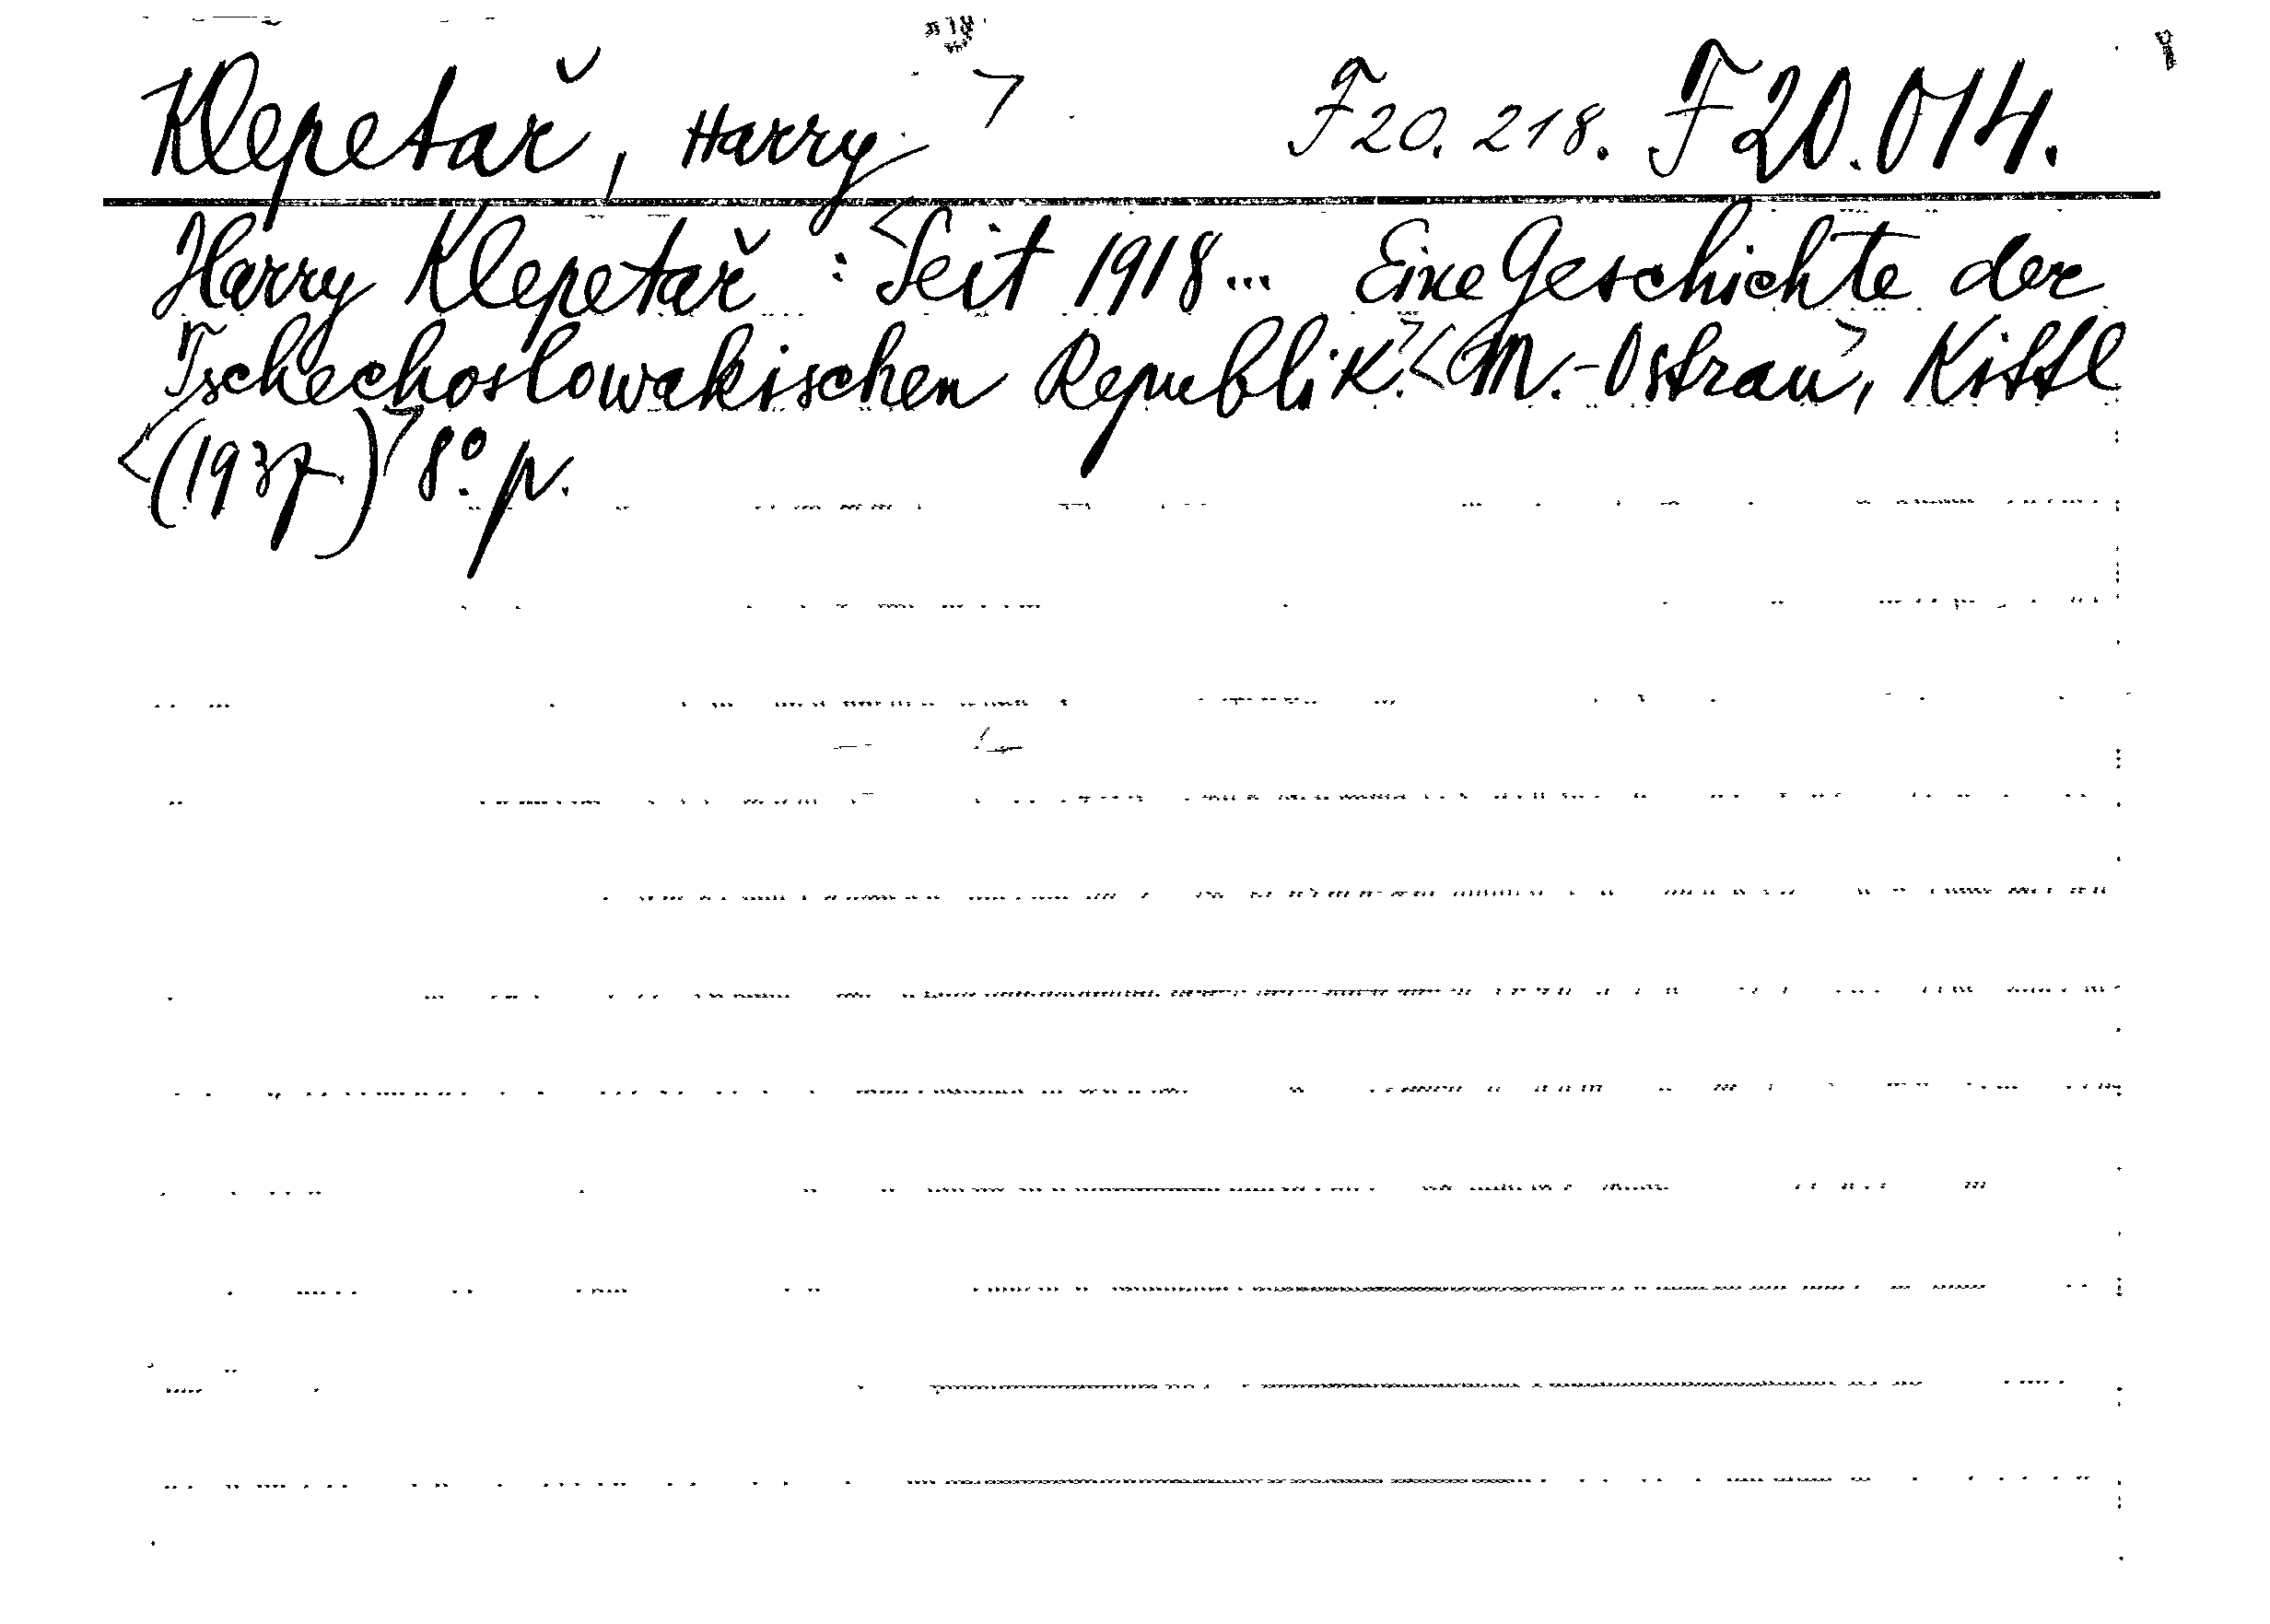 Klepetař, Harry> F 20. 218. F 20.014.
Harry Klepetař : <Seit 1918... Eine Geschichte der
Tschechoslowakischen Republik.> <M.-Ostrau>, Kittl
<(1937)> 8º. p.